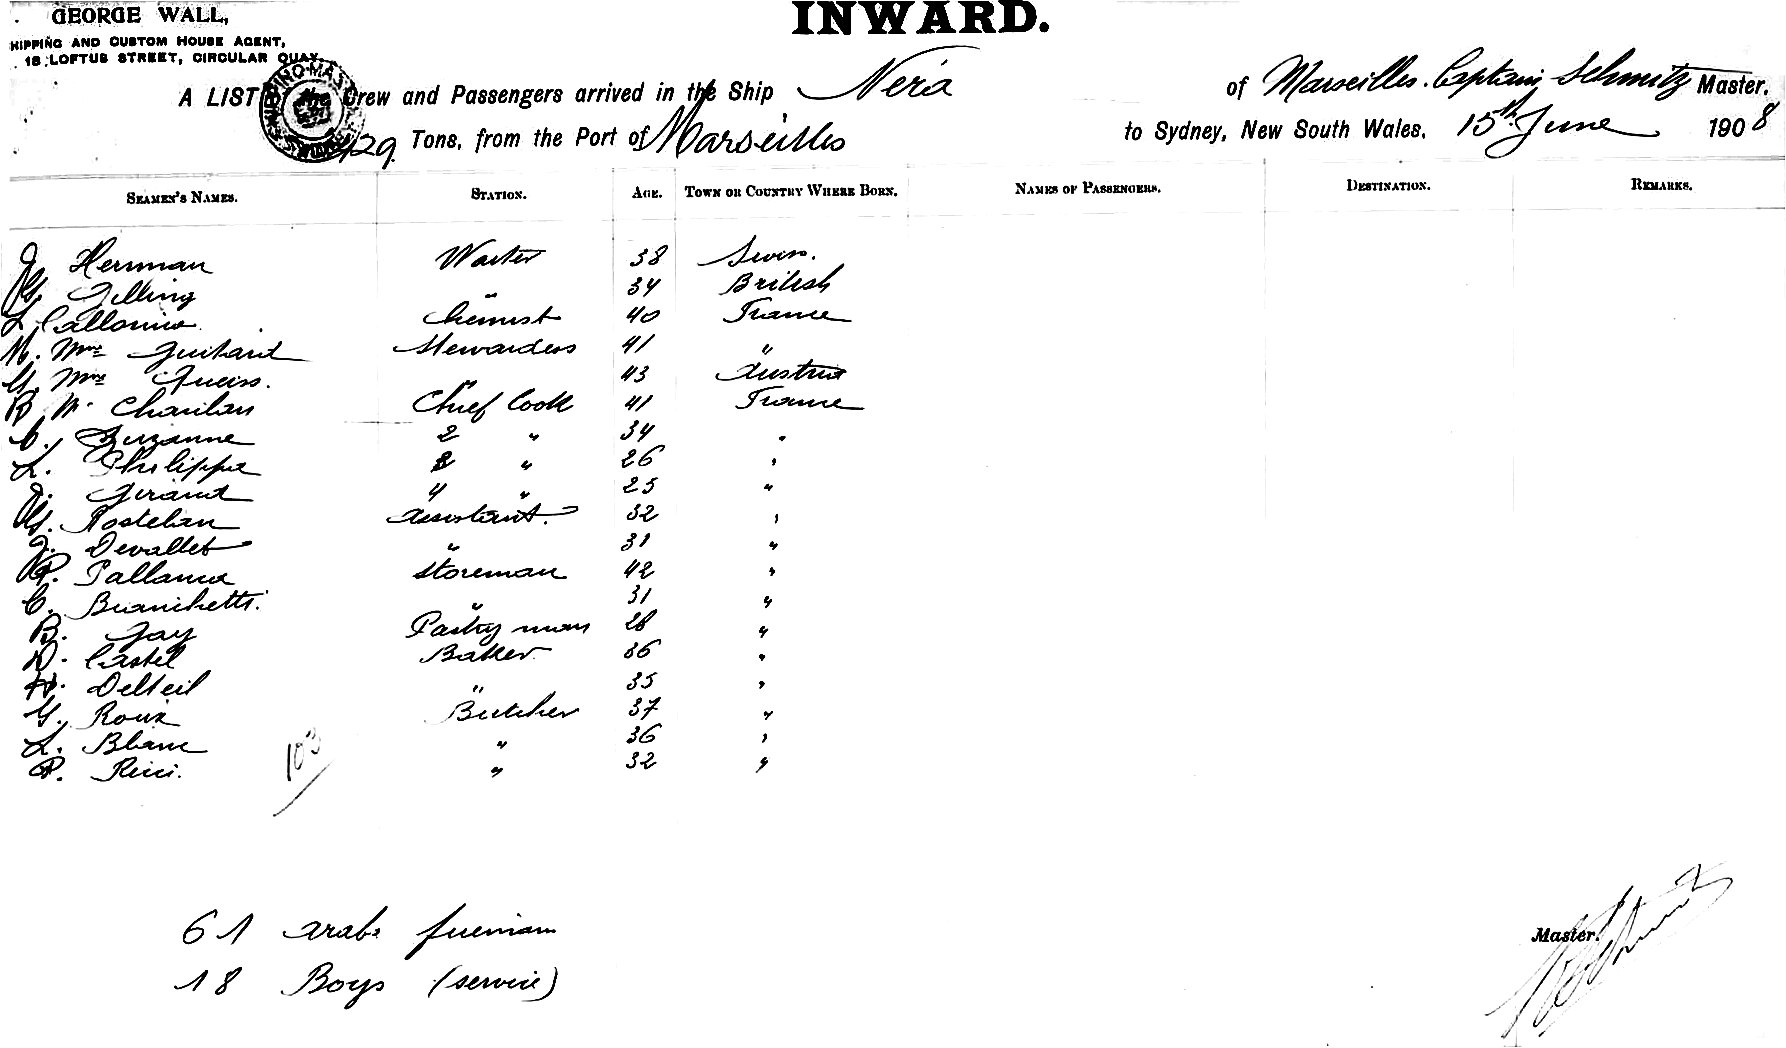 GEORGE WALL,
HIPPING AND CUSTOM HOUSE AGENT,
18 LOFTUS STREET, CIRCULAR QUAY.
INWARD.
A LIST of the Crew and Passengers arrived in the Ship Nera of Marseilles. Captain Schmitz Master,
429 Tons, from the Port of Marseilles to Sydney, New South Wales, 15th June 1908
SEAMEN'S NAMES. STATION. AGE. TOWN OR COUNTRY WHERE BORN. NAMES OF PASSENGERS. DESTINATION. REMARKS.
J. Herrman Waiter 38 Swiss.
Gelling " 34 British
L. Chemist 40 France
M. Mme Guitard Stewardess 41 "
G. Mme " 43 Austria
B. M. Charlan Chief Cook 41 France
C. Suzanne 2 " 34 "
L. Philippe 2 " 26 "
J. Giraud 4 " 25 "
G. Rostelan assistant. 32 "
J. Devallet " 31 "
P. Pallanca Storeman 42 "
C. Bianchetti. " 31 "
B. Gay Pastry man 28 "
D. Castel Baker 36 "
H. Delteil " 35 "
G. Roux Butcher 37 "
L. Blanc " 36 "
P. Ricci. " 32 "
103
61 arabs firemen
18 Boys (service)
Master.